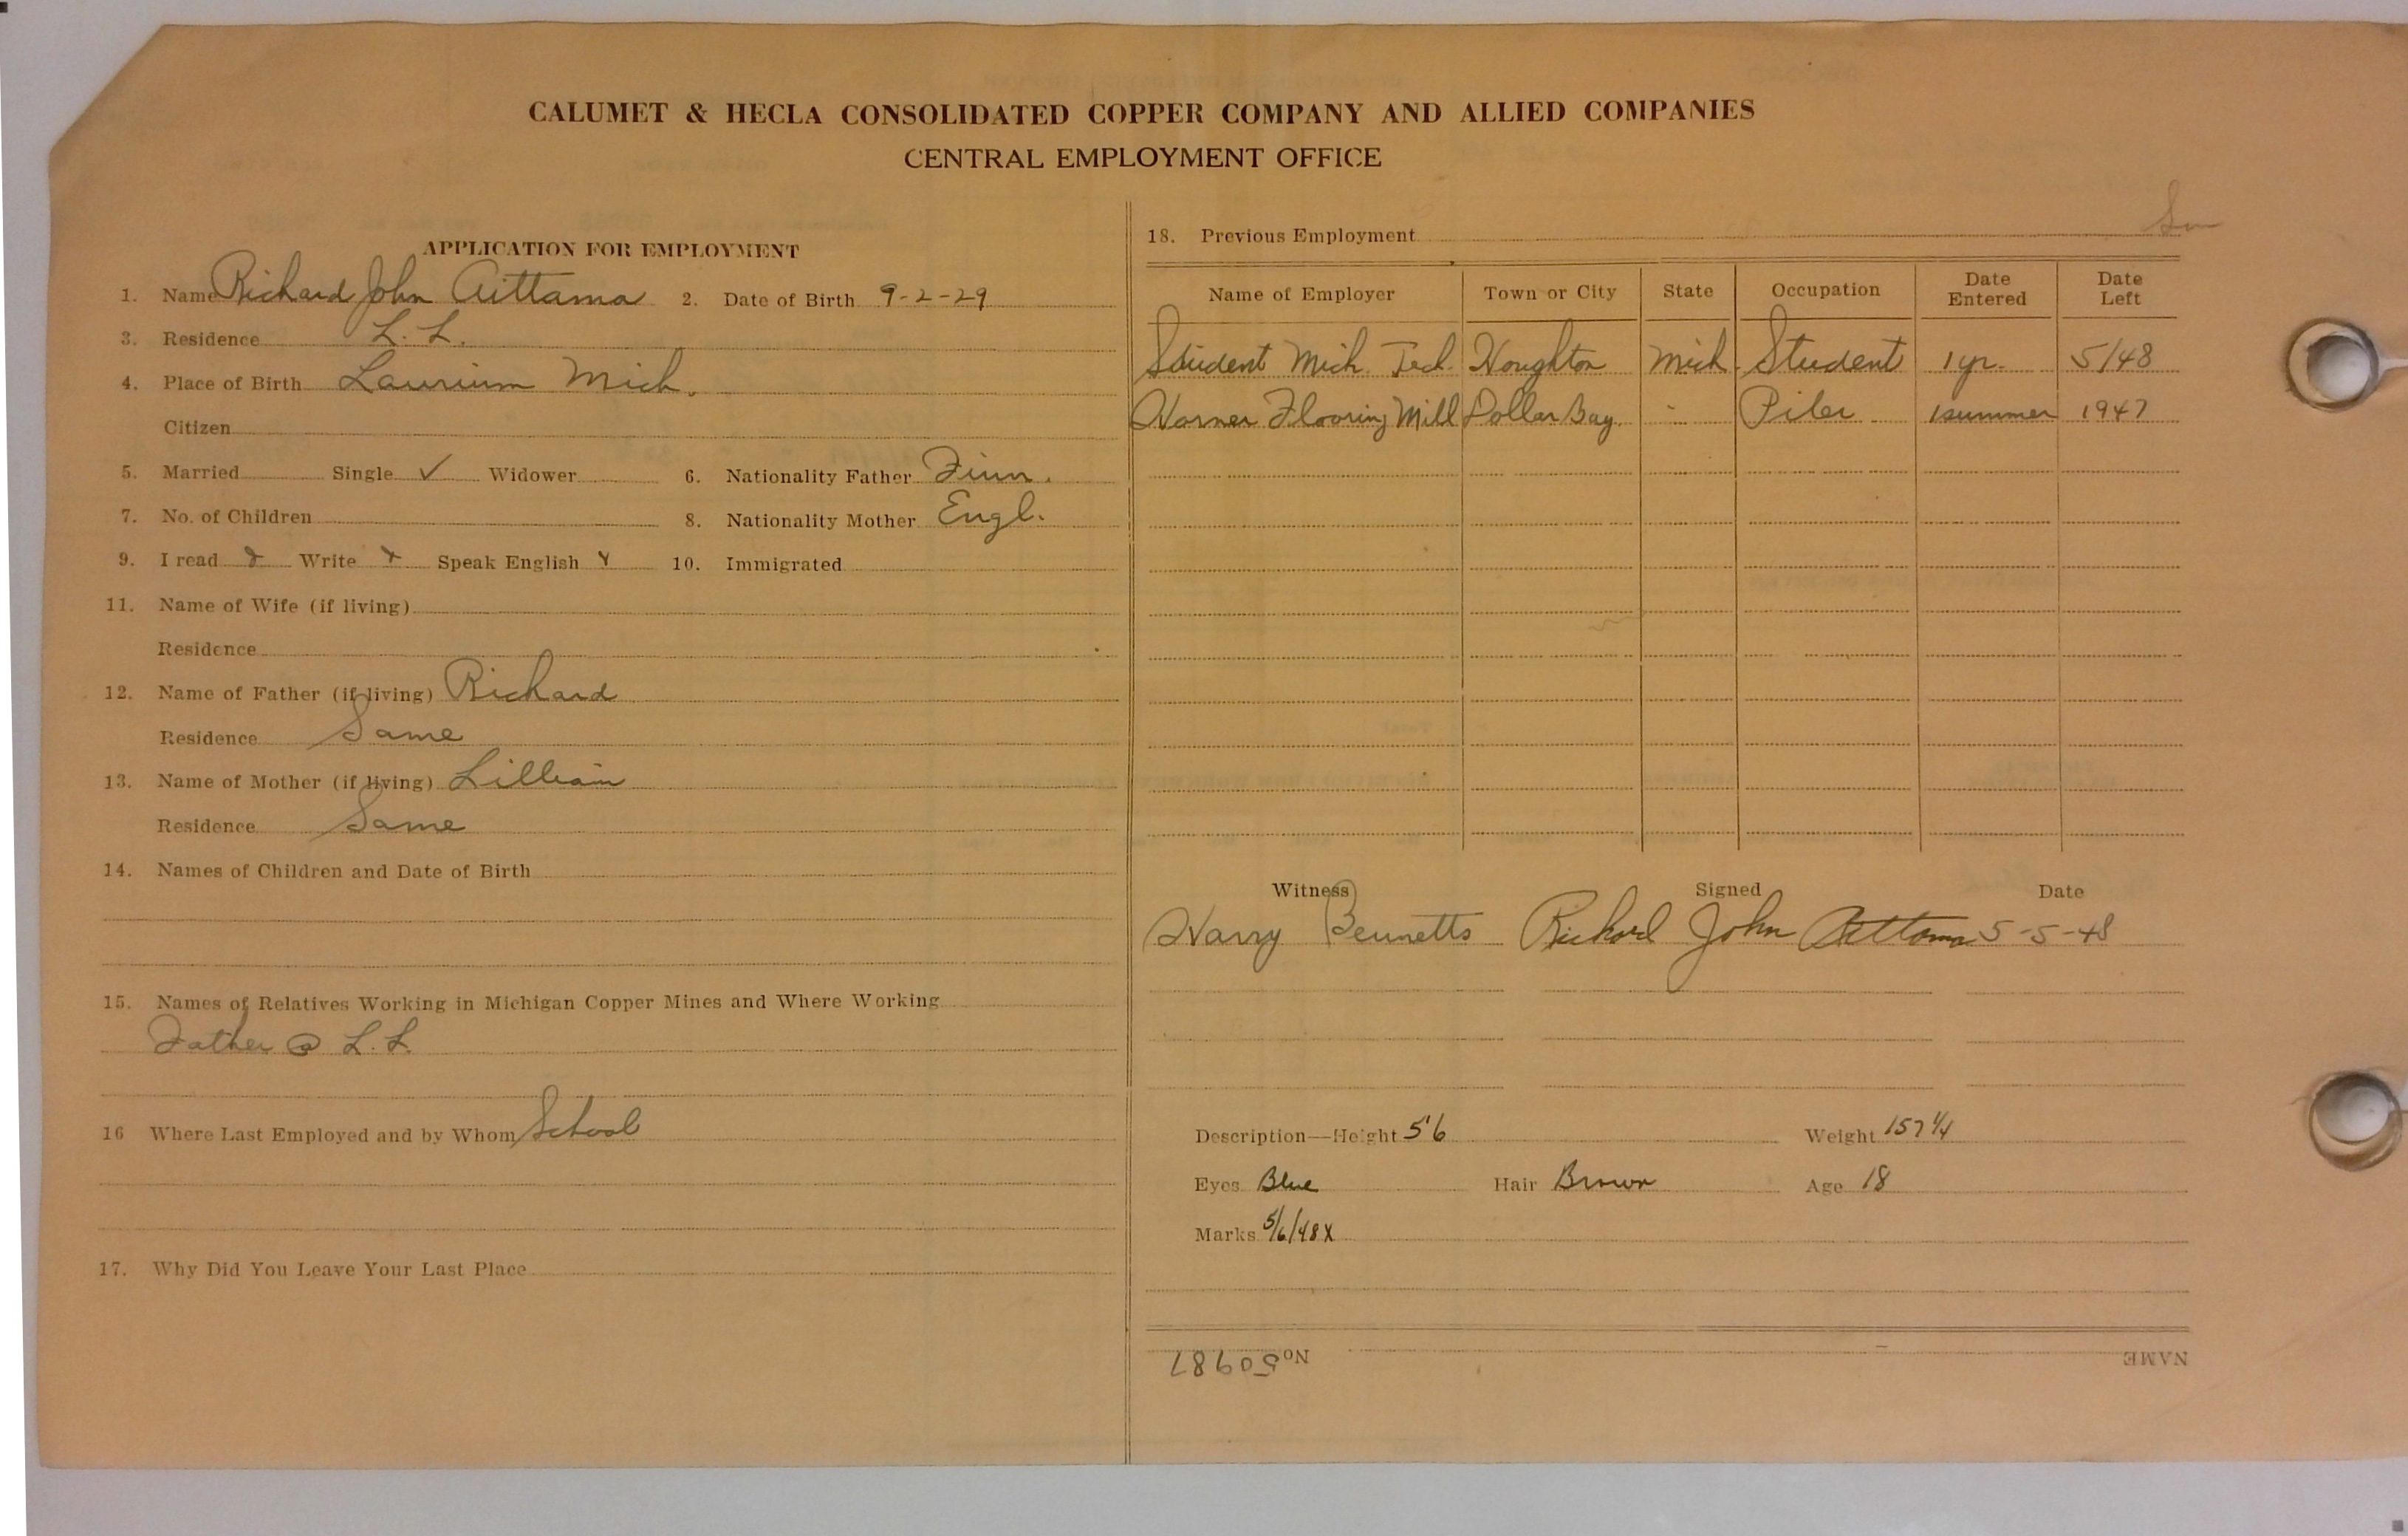 CALUMET & HECLA CONSOLIDATED COPPER COMPANY AND ALLIED COMPANIES
CENTRAL EMPLOYMENT OFFICE
APPLICATION FOR EMPLOYMENT
1. Name Richard John Aittama 2. Date of Birth 9-2-29
3. Residence L. L.
4. Place of Birth Laurium Mich.
Citizen
5. Married Single ✓ Widower 6. Nationality Father Finn.
7. No. of Children 8. Nationality Mother Engl.
9. I read Write Speak English 10. Immigrated
11. Name of Wife (if living)
Residence
12. Name of Father (if living) Richard
Residence Same
13. Name of Mother (if living) Lillian
Residence Same
14. Names of Children and Date of Birth
15. Names of Relatives Working in Michigan Copper Mines and Where Working
Father @ L. L.
16 Where Last Employed and by Whom School
17. Why Did You Leave Your Last Place
18. Previous Employment
Name of Employer Town or City State Occupation Date Entered Date Left
Student Mich. Tech. Houghton Mich Student 1 yr. 5/48
Horner Flooring Mill Dollar Bay. " Piler 1 summer 1947
Witness Signed Date
Harry Bennetts Richard John Aittama 5-5-48
Description—Height 5'6 Weight 157 1/4
Eyes Blue Hair Brown Age 18
Marks 5/6/48 X
No 50987 NAME